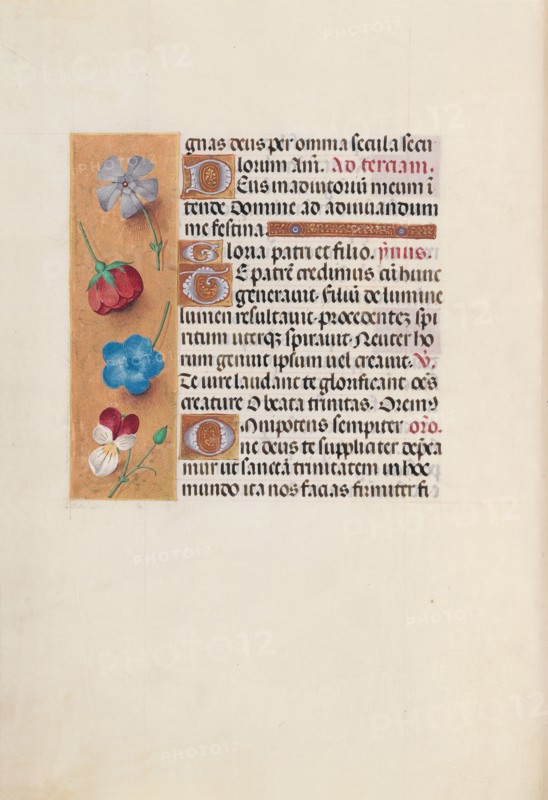 gnas deus per omnia secula secu
lorum Am̄. Ad terciam.
Deus in adiutoriū meum ī
tende Domine ad adiuuandum
me festina.
Gloria patri et filio. ymus.
Te patrē credimus cū hunc
generauit. filiū de lumine
lumen resultauit. procedentez spi
ritum uterqz spirauit. Neuter ho
rum genuit ipsum uel creauit. V.
Te iure laudant te glorificant oēs
creature O beata trinitas. Orem9
Omnipotens sempiter oro.
ne deus te suppliciter depca
mur ut sanctā trinitatem in hoc
mundo ita nos facias firmiter fi
PHOTO12